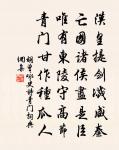 漢皇提劍滅咸秦
亡國諸侯盡是臣
唯有東陵守高節
青門甘作種瓜人
胡曾咏史詩青門詞典
網集